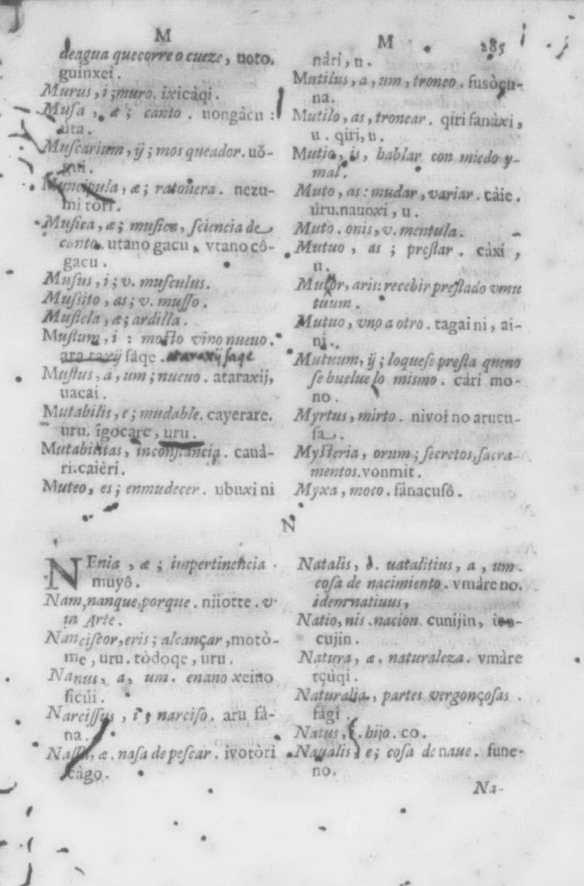 M
deagua quecorre o cueze, uoto.
guinxei.
Murus, i; muro. ixicàqi.
Musa, æ; canto. uongàcu:
uta.
Muscarium, ij; mosqueador. uô-
Muscipula, æ; ratonera. nezu-
mi tori.
Musica, æ; musica, sciencia de
canto. utano gacu, vtano cô-
gacu.
Musus, i; v. musculus.
Mussito, as; v. musso.
Mustela, æ; ardilla.
Mustum, i: mosto vino nueuo.
ara taxij sàqe. ataraxij saqe
Mustus, a, um; nueuo. ataraxij,
uacai.
Mutabilis, e; mudable. cayerare.
uru. igocare, uru.
Mutabilitas, inconstancia. cauà-
ri. caièri.
Muteo, es; enmudecer. ubuxi ni
M 285
nàri, u.
Mutilus, a, um, tronco. fusòcu-
na.
Mutilo, as, troncar. qiri fanàxi,
u. qiri, u.
Mutio, is, hablar con miedo y-
mal.
Muto, as: mudar, variar. càie.
uru. nauoxi, u.
Muto. onis, v. mentula.
Mutuo, as; prestar. càxi,
u.
Mutor, aris: recebir prestado v mu
tuum.
Mutuo, vno a otro. tagai ni, ai-
ni.
Mutuum, ij; loquese presta queno
se buelue lo mismo. càri mo-
no.
Myrtus, mirto. nivoi no arucu-
sa.
Mysteria, orum; secretos, sacra-
mentos. vonmit.
Myxa, moco. fànacusô.
N
NEnia, æ; impertinencia.
muyô.
Nam, nanque, porque. nijotte. v
in Arte.
Nanciscor, eris; alcançar, motò-
me, uru. tòdoqe, uru.
Nanus, a, um. enano xeino
ficúi.
Narcissus, i; narciso. aru fà-
na.
Nassa, æ. nasa de pescar. ivotòri
càgo.
Natalis, l. uatalitius, a, um.
cosa de nacimiento. vmàre no.
idem natiuus,
Natio, nis. nacion. cunijin, ico-
cujin.
Natura, æ. naturaleza. vmàre
tçuqi.
Naturalia, partes vergonçosas.
fàgi.
Natus, i. hijo. co.
Naualis, e; cosa de naue. fune-
no.
Na-